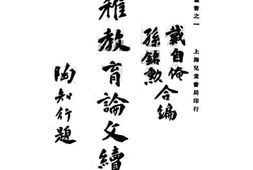 書之一
上海兒童書局印行
戴自俺
孫銘勳
合編
稚教育論文續
陶知行題